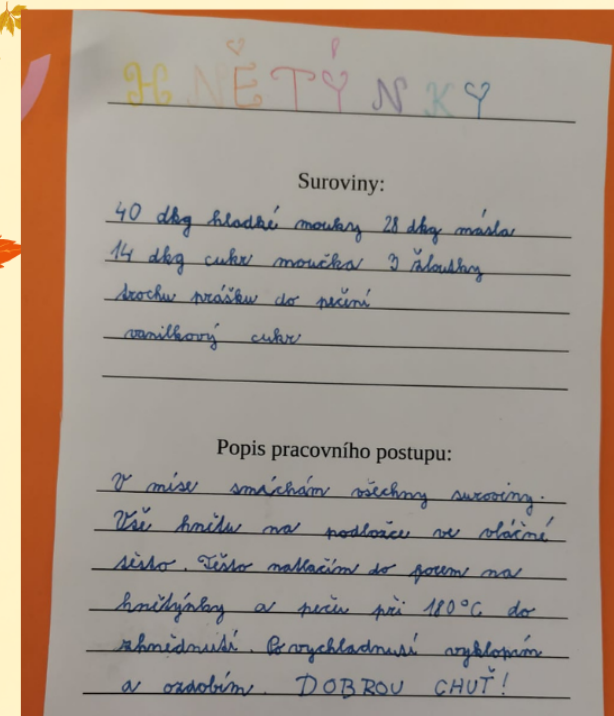 HNĚTÝNKY
Suroviny:
40 dkg hladké mouky 28 dkg másla
14 dkg cukr moučka 3 žloutky
trochu prášku do pečení
vanilkový cukr
Popis pracovního postupu:
V míse smíchám všechny suroviny.
Vše hnětu na podložce ve vláčné
těsto. Těsto natlačím do forem na
hnětýnky a peču při 180°C do
zhnědnutí. Po vychladnutí vyklopím
a ozdobím. DOBROU CHUŤ!